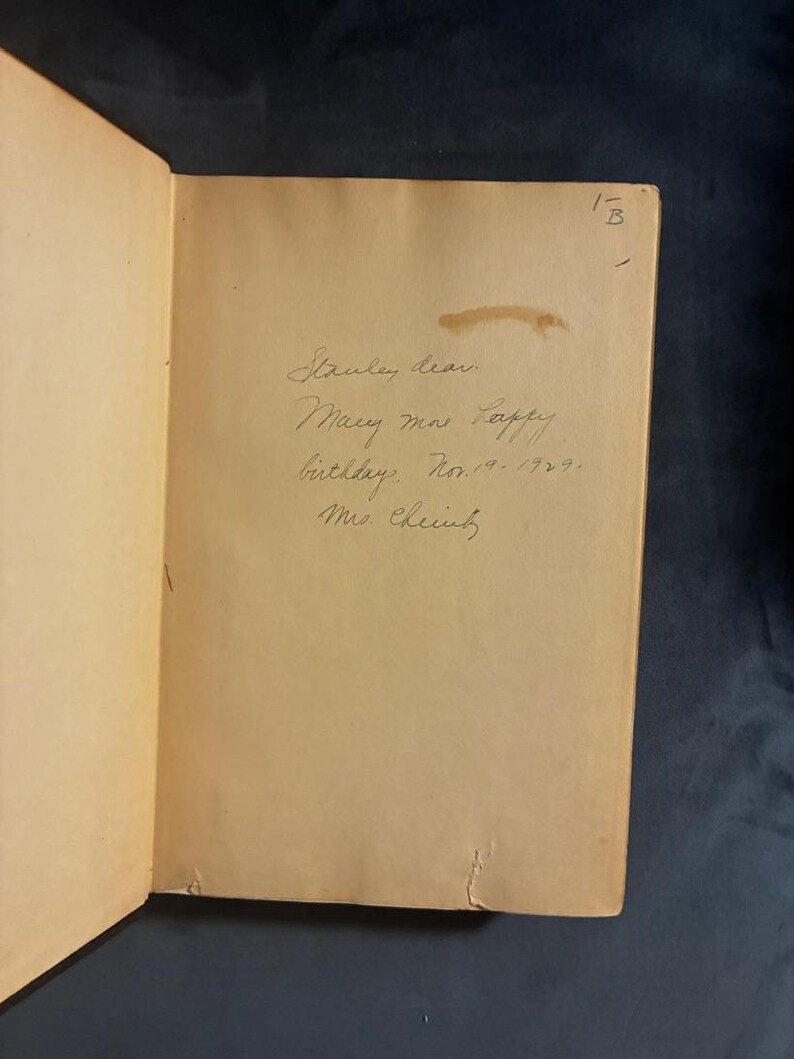 1-
B
Stanley dear.
Many more happy
birthdays. Nov. 19 - 1929.
Mrs.